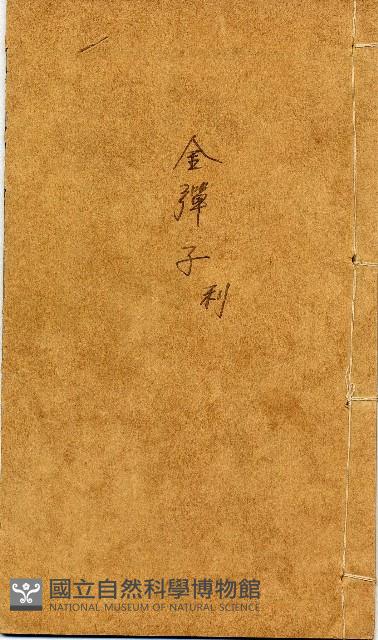 金彈子
利
國立自然科學博物館
NATIONAL MUSEUM OF NATURAL SCIENCE